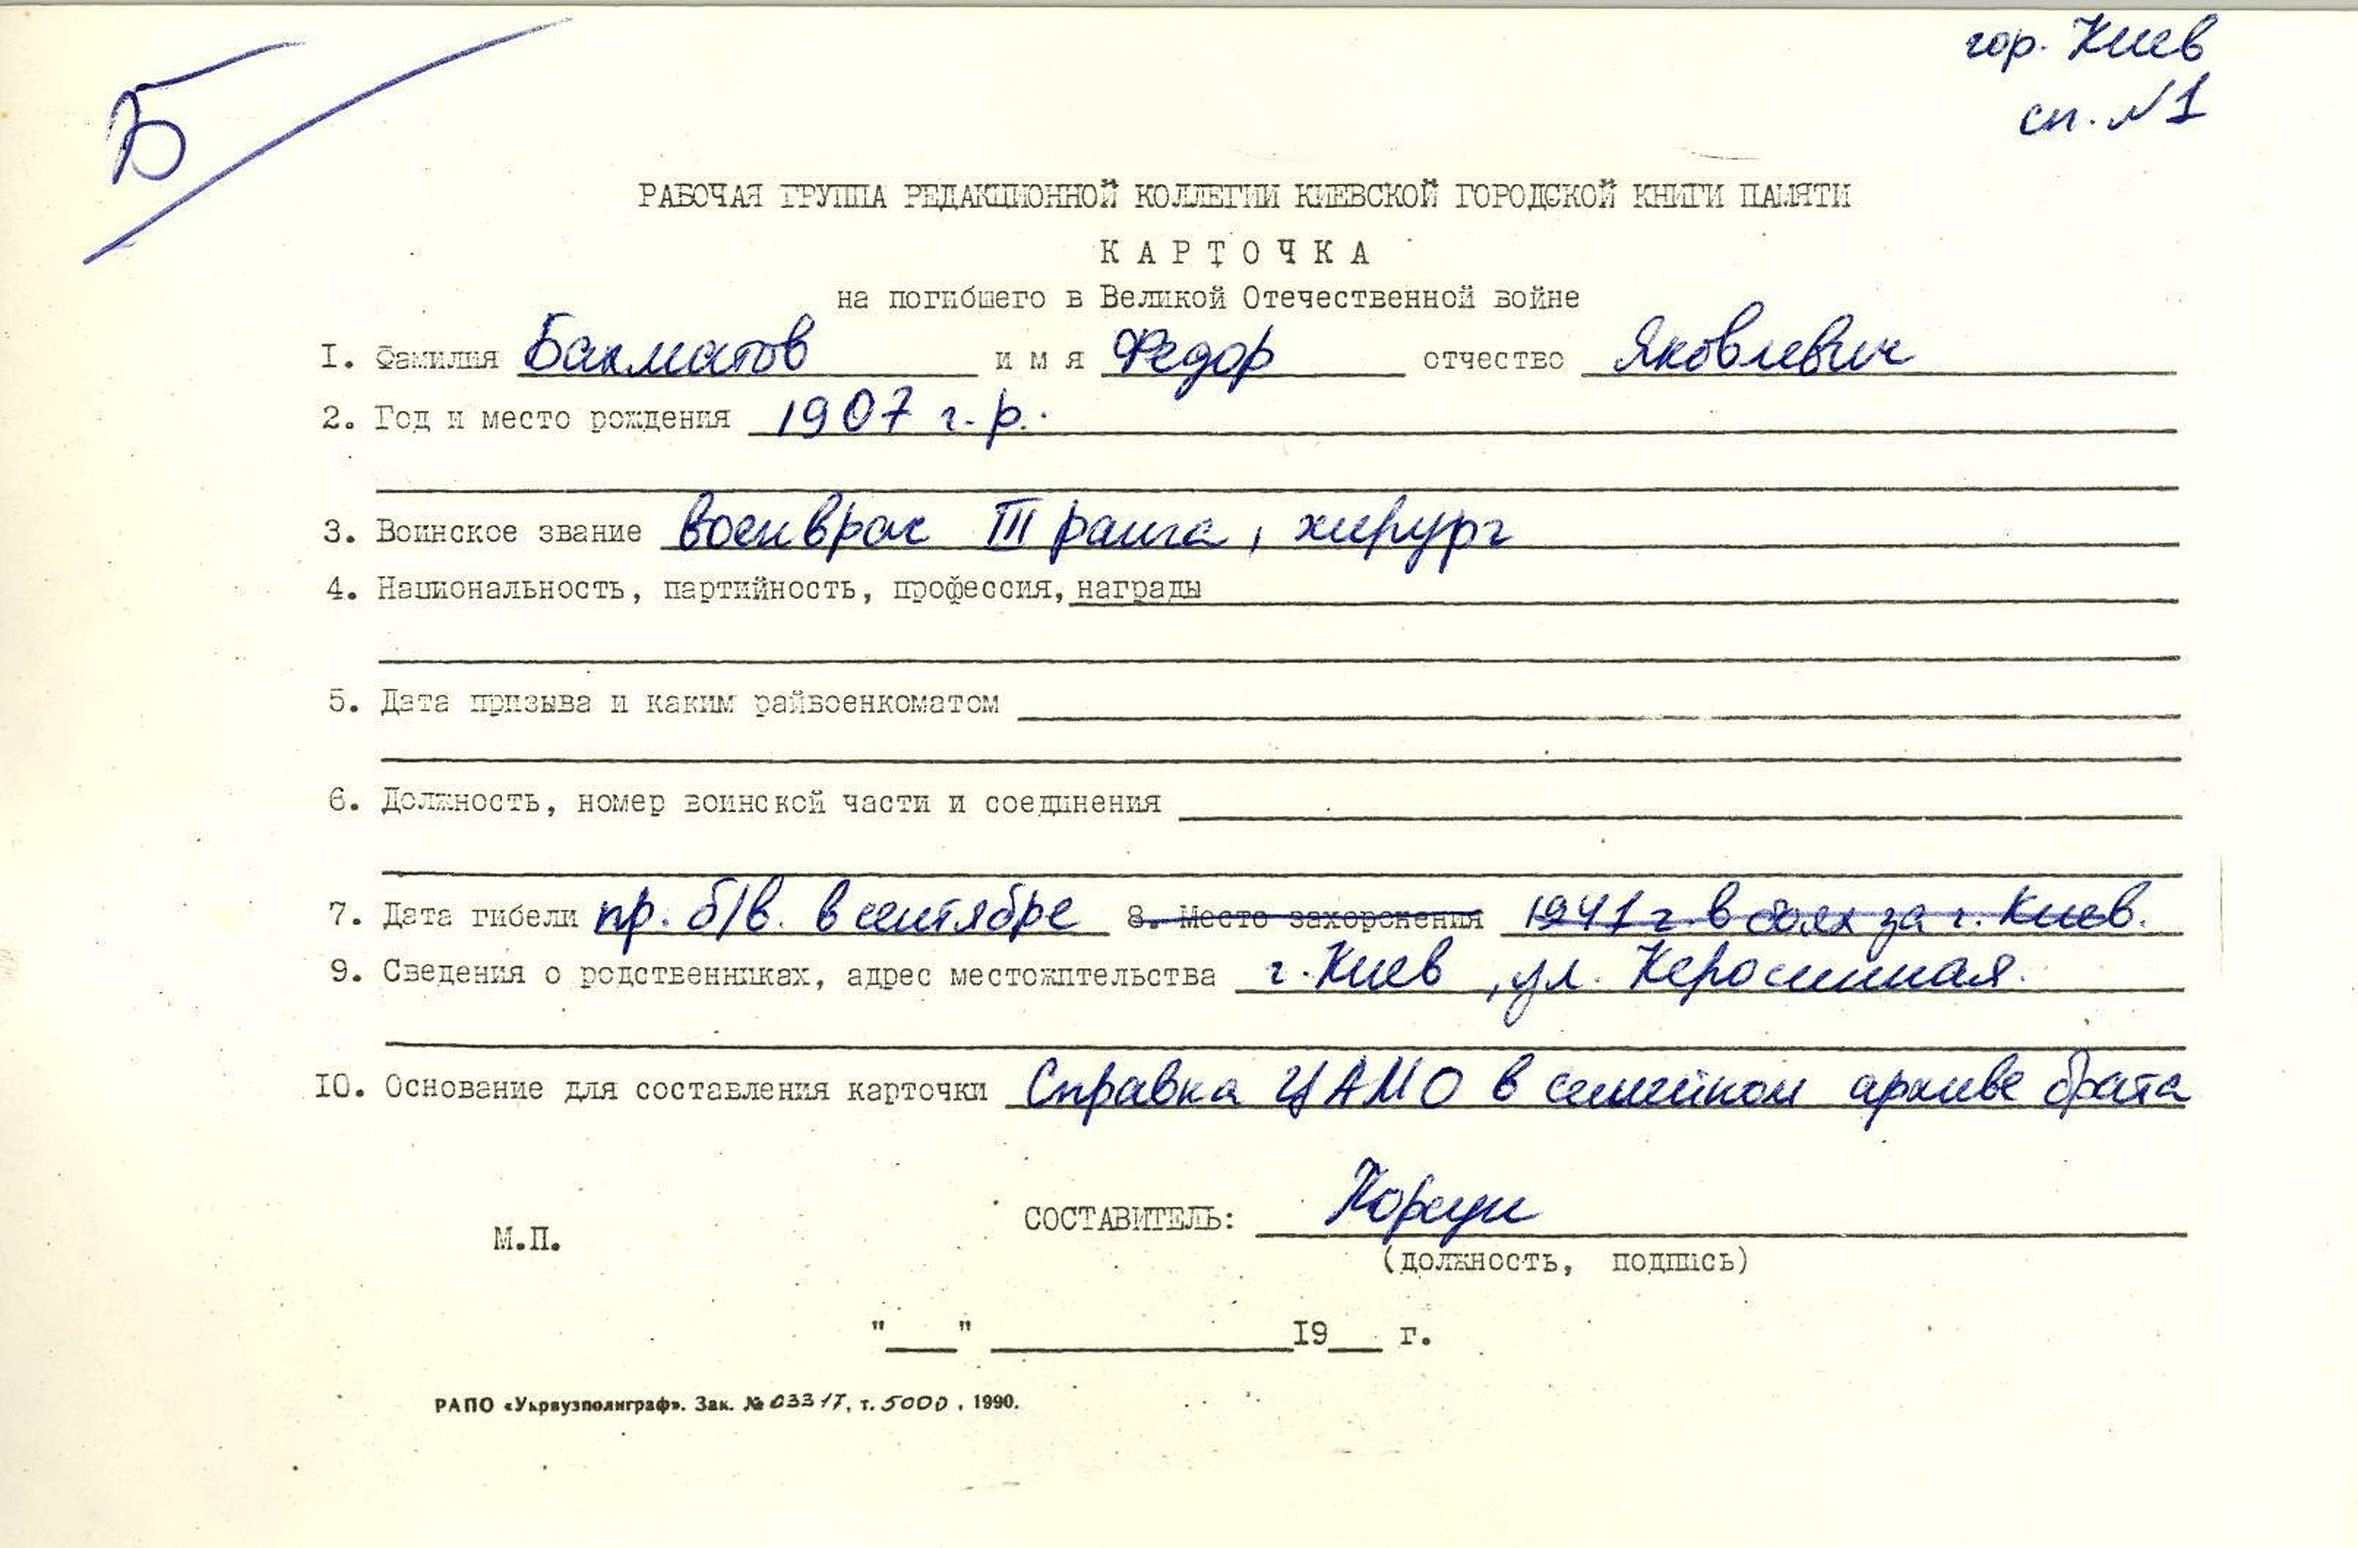 Б
гор. Киев
сп. №1
РАБОЧАЯ ГРУППА РЕДАКЦИОННОЙ КОЛЛЕГИИ КИЕВСКОЙ ГОРОДСКОЙ КНИГИ ПАМЯТИ
КАРТОЧКА
на погибшего в Великой Отечественной войне
I. Фамилия Бахматов имя Федор отчество Яковлевич
2. Год и место рождения 1907 г.р.
3. Воинское звание военврач III ранга, хирург
4. Национальность, партийность, профессия, награды
5. Дата призыва и каким райвоенкоматом
6. Должность, номер воинской части и соединения
7. Дата гибели пр. б/в. в сентябре 8. Место захоронения 1941 г. в боях за г. Киев.
9. Сведения о родственниках, адрес местожительства г. Киев, ул. Керосинная.
IO. Основание для составления карточки Справка ЦАМО в семейном архиве брата
СОСТАВИТЕЛЬ:
М.П.
(должность, подпись)
"___" ____________I9___ г.
РАПО «Укрвузполиграф». Зак. № 03317, т. 5000, 1990.